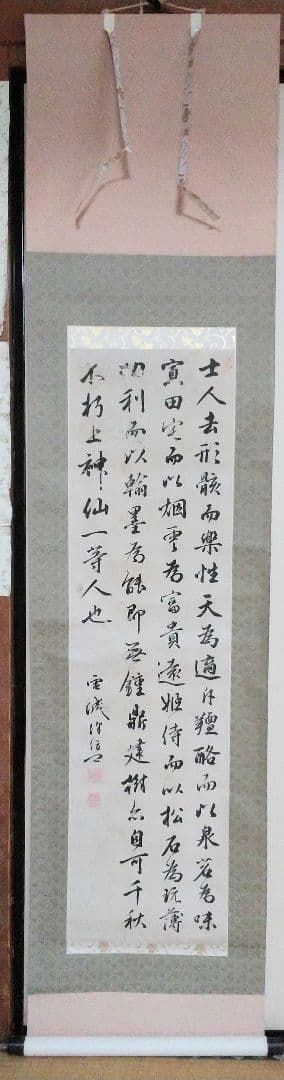 士人去形骸而樂性天為適斥羶酪而以泉茗為味
寘田宅而以烟雲為富貴遠姬侍而以松石為玩薄
利而以翰墨為能即無鍾鼎建樹亦自可千秋
不朽上神仙一等人也